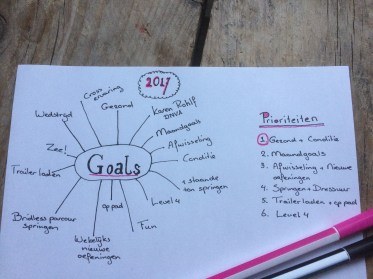 2017
Cross
ervaring
Gezond
Karen Rohlf
DMVA
Maandgoals
Afwisseling
Conditie
± staande
ton springen
Level 4
Fun
op pad
Wekelijks
nieuwe
oefeningen
Bridless parcour
springen
Trailer laden
Zee!
Wedstrijd
Goals
Prioriteiten
1 Gezond + Conditie
2. Maandgoals
3. Afwisseling + Nieuwe
oefeningen
4. Springen + Dressuur
5. Trailer laden + op pad
6. Level 4